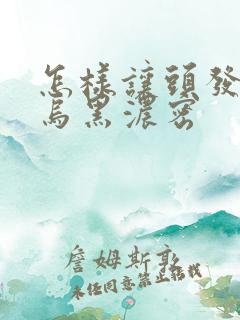 怎樣讓頭發
烏黑濃密
詹姆斯敦
未任同意禁止铭我